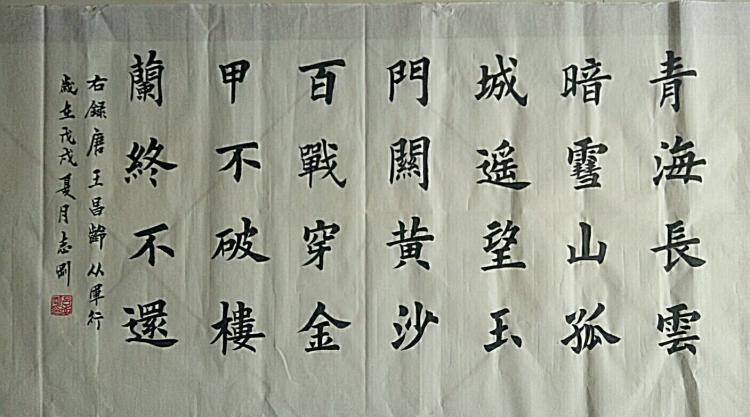 青海長雲
暗雪山孤
城遥望玉
門關黄沙
百戰穿金
甲不破樓
蘭終不還
右録唐王昌齡从軍行
歲在戊戌夏月志剛